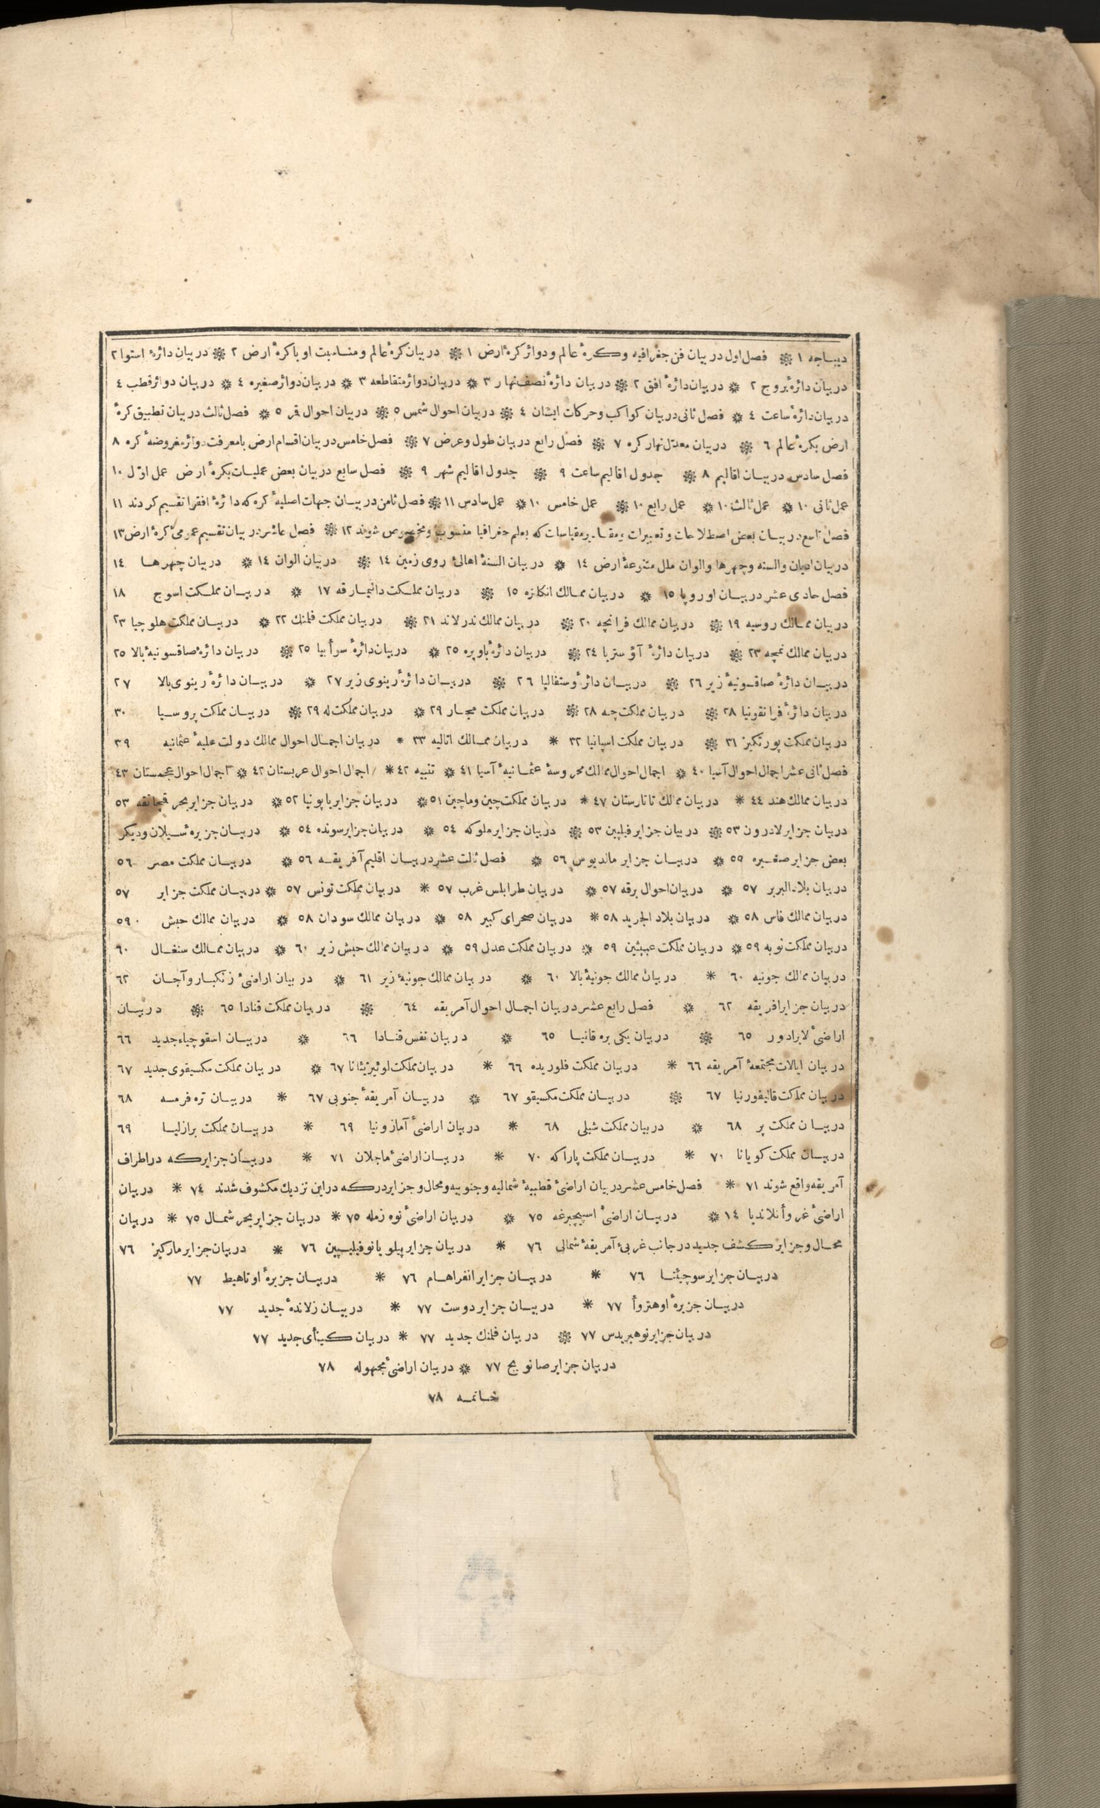 دیباجه ١ ❊ فصل اول در بیان فن جغرافیه وکرۀ عالم ودوائر کرۀ ارض ١ ❊ در بیان کرۀ عالم ومناسبت او با کرۀ ارض ٢ ❊ در بیان دائرۀ استوا ٢
در بیان دائرۀ بروج ٢ ❊ در بیان دائرۀ افق ٢ ❊ در بیان دائرۀ نصف نهار ٣ ❊ در بیان دوائر متقاطعه ٣ ❊ در بیان دوائر صغیره ٤ ❊ در بیان دوائر قطب ٤
در بیان دائرۀ ساعت ٤ ❊ فصل ثانی در بیان کواکب وحرکات ایشان ٤ ❊ در بیان احوال شمس ٥ ❊ در بیان احوال قمر ٥ ❊ فصل ثالث در بیان تطبیق کرۀ
ارض بکرۀ عالم ٦ ❊ در بیان معدل نهار کره ٧ ❊ فصل رابع در بیان طول وعرض ٧ ❊ فصل خامس در بیان اقسام ارض بامعرفت دوائر مفروضۀ کره ٨
فصل سادس در بیان اقالیم ٨ ❊ جدول اقالیم ساعت ٩ ❊ جدول اقالیم شهر ٩ ❊ فصل سابع در بیان بعض عملیات بکرۀ ارض عمل اول ١٠
عمل ثانی ١٠ ❊ عمل ثالث ١٠ ❊ عمل رابع ١٠ ❊ عمل خامس ١٠ ❊ عمل سادس ١١ ❊ فصل ثامن در بیان جهات اصلیۀ کره که دائرۀ افقرا تقسیم کردند ١١
فصل تاسع در بیان بعض اصطلاحات وتعبیرات ومقیاسات که بعلم جغرافیا منسوب ومخصوص شوند ١٢ ❊ فصل عاشر در بیان تقسیم عمومی کرۀ ارض ١٣
در بیان ادیان والسنه وچهرها والوان ملل متنوعۀ ارض ١٤ ❊ در بیان السنۀ اهالئ روی زمین ١٤ ❊ در بیان الوان ١٤ ❊ در بیان چهرها ١٤
فصل حادی عشر در بیان اوروپا ١٥ ❊ در بیان ممالك انكلزه ١٥ ❊ در بیان مملكت دانیمارقه ١٧ ❊ در بیان مملكت اسوج ١٨
در بیان ممالك روسیه ١٩ ❊ در بیان ممالك فرانچه ٢٠ ❊ در بیان ممالك ندرلاند ٢١ ❊ در بیان مملكت فلمنك ٢٢ ❊ در بیان مملكت هلوجیا ٢٣
در بیان ممالك نمچه ٢٣ ❊ در بیان دائرۀ آوستریا ٢٤ ❊ در بیان دائرۀ باویره ٢٥ ❊ در بیان دائرۀ سوأبیا ٢٥ ❊ در بیان دائرۀ صاقسونیۀ بالا ٢٥
در بیان دائرۀ صاقسونیۀ زیر ٢٦ ❊ در بیان دائرۀ وستفالیا ٢٦ ❊ در بیان دائرۀ رینوی زیر ٢٧ ❊ در بیان دائرۀ رینوی بالا ٢٧
در بیان دائرۀ فرانقونیا ٢٨ ❊ در بیان مملكت چه ٢٨ ❊ در بیان مملكت مجار ٢٩ ❊ در بیان مملكت له ٢٩ ❊ در بیان مملكت پروسیا ٣٠
در بیان مملكت پورتكیز ٣١ ❊ در بیان مملكت اسپانیا ٣٢ * در بیان ممالك اتالیه ٣٣ * در بیان اجمال احوال ممالك دولت علیۀ عثمانیه ٣٩
فصل ثانی عشر اجمال احوال آسیا ٤٠ ❊ اجمال احوال ممالك محروسۀ عثمانیۀ آسیا ٤١ ❊ تنبیه ٤٢ * اجمال احوال عربستان ٤٢ ❊ اجمال احوال عجمستان ٤٣
در بیان ممالك هند ٤٤ * در بیان ممالك تاتارستان ٤٧ * در بیان مملكت چین وماچین ٥١ ❊ در بیان جزایر یاپونیا ٥٢ ❊ در بیان جزایر بحر قمچاتقه ٥٣
در بیان جزایر لادرون ٥٣ ❊ در بیان جزایر فیلپین ٥٣ ❊ در بیان جزایر ملوكه ٥٤ ❊ در بیان جزایر سونده ٥٤ ❊ در بیان جزیرۀ سیلان ودیكر
بعض جزایر صغیره ٥٥ ❊ در بیان جزایر مالدیوس ٥٦ ❊ فصل ثالث عشر در بیان اقلیم آفریقه ٥٦ ❊ در بیان مملكت مصر ٥٦
در بیان بلاد البربر ٥٧ ❊ در بیان احوال برقه ٥٧ ❊ در بیان طرابلس غرب ٥٧ * در بیان مملكت تونس ٥٧ ❊ در بیان مملكت جزایر ٥٧
در بیان ممالك فاس ٥٨ ❊ در بیان بلاد الجرید ٥٨ * در بیان صحرای كبیر ٥٨ ❊ در بیان ممالك سودان ٥٨ ❊ در بیان ممالك حبش ٥٩
در بیان مملكت نوبه ٥٩ ❊ در بیان مملكت ٥٩ ❊ در بیان مملكت عدل ٥٩ ❊ در بیان ممالك حبش زیر ٦٠ ❊ در بیان ممالك سنغال ٦٠
در بیان ممالك جونیه ٦٠ * در بیان ممالك جونیۀ بالا ٦٠ ❊ در بیان ممالك جونیۀ زیر ٦١ ❊ در بیان اراضئ زنكبار وآجان ٦٢
در بیان جزایر افریقه ٦٢ ❊ فصل رابع عشر در بیان اجمال احوال آمریقه ٦٤ ❊ در بیان مملكت قنادا ٦٥ ❊ در بیان
اراضئ لابرادور ٦٥ ❊ در بیان یكی بره تانیا ٦٥ ❊ در بیان نفس قنادا ٦٦ ❊ در بیان اسقوچیاء جدید ٦٦
در بیان ایالات مجتمعۀ آمریقه ٦٦ * در بیان مملكت فلوریده ٦٦ * در بیان مملكت لوئیزیانا ٦٧ ❊ در بیان مملكت مكسیقوی جدید ٦٧
در بیان مملكت قالیفورنیا ٦٧ ❊ در بیان مملكت مكسیقو ٦٧ ❊ در بیان آمریقۀ جنوبی ٦٧ * در بیان تره فرمه ٦٨
در بیان مملكت پر ٦٨ ❊ در بیان مملكت شیلی ٦٨ * در بیان اراضئ آمازونیا ٦٩ * در بیان مملكت برازلیا ٦٩
در بیان مملكت كویانا ٧٠ * در بیان مملكت پاراكه ٧٠ * در بیان اراضئ ماجلان ٧١ * در بیان جزایر كه در اطراف
آمریقه واقع شوند ٧١ * فصل خامس عشر در بیان اراضئ قطبیۀ شمالیه وجنوبیه ومحال وجزایر كه در این نزدیك مكشوف شدند ٧٤ * در بیان
اراضئ غروأنلاندیا ❊ در بیان اراضئ اسپیچبرغه ٧٥ ❊ در بیان اراضئ نوه زمله ٧٥ * در بیان جزایر بحر شمال ٧٥ * در بیان
محال وجزایر كشف جدید در جانب غربئ آمریقۀ شمالی ٧٦ * در بیان جزایر پیلو یا نو فیلیپین ٧٦ * در بیان جزایر ماركیز ٧٦
در بیان جزایر سوچیتا ٧٦ * در بیان جزایر انفراهام ٧٦ * در بیان جزیرۀ اوتاهیط ٧٧
در بیان جزیرۀ اوهتروأ ٧٧ * در بیان جزایر دوست ٧٧ * در بیان زلاندۀ جدید ٧٧
در بیان جزایر نوهبریدس ٧٧ ❊ در بیان فلمنك جدید ٧٧ * در بیان كینأی جدید ٧٧
در بیان جزایر صانویچ ٧٧ ❊ در بیان اراضئ مجهوله ٧٨
خاتمه ٧٨